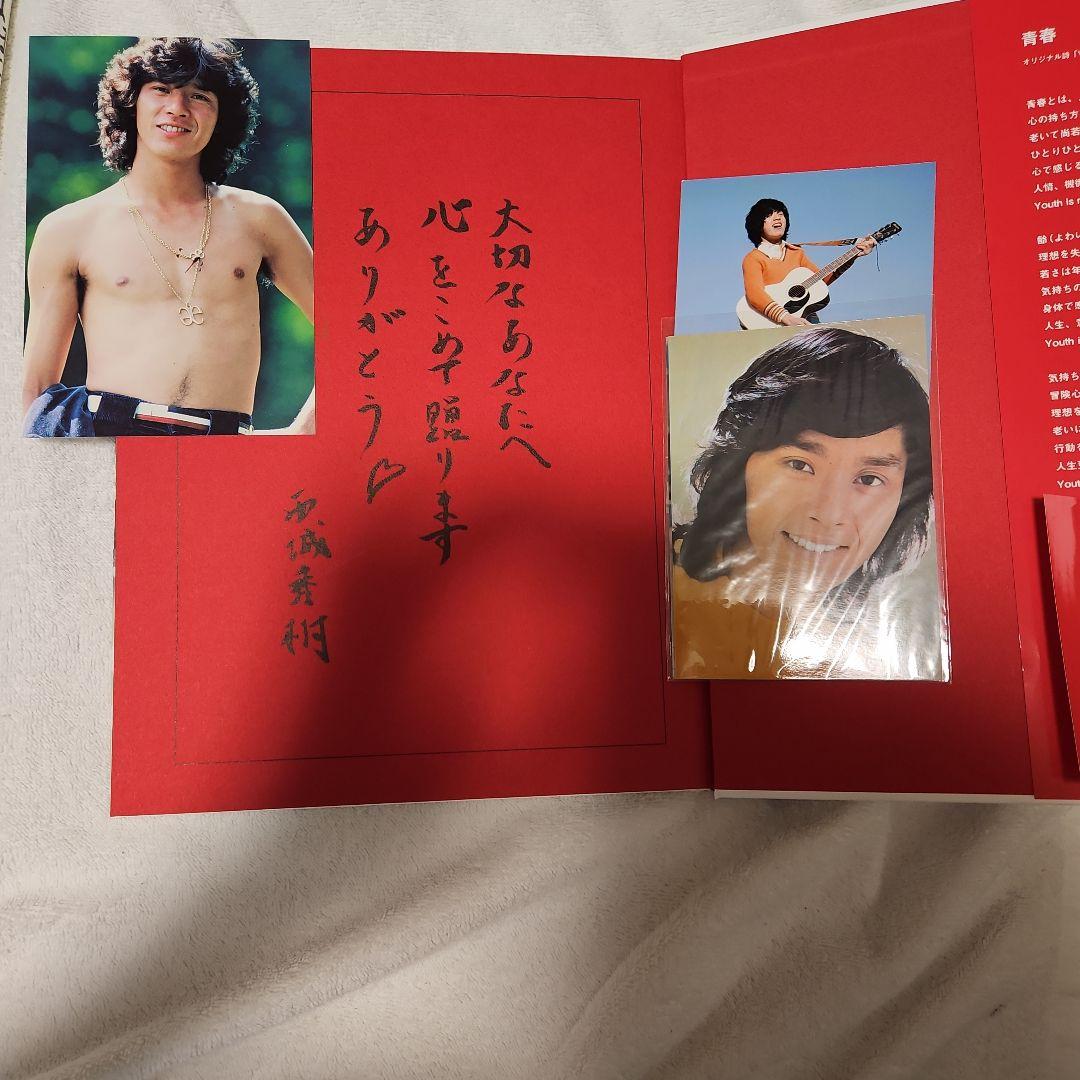 大切なあなたへ
心をこめて贈ります
ありがとう
西城秀樹
青春
オリジナル詩「
青春とは、
心の持ち方
老いて尚若
ひとりひと
心で感じる
人情、機微
Youth is
齢(よわい
理想を失
若さは年
気持ちの
身体で感
人生、
Youth i
気持ち
冒険心
理想を
老いに
行動
人生
Yout